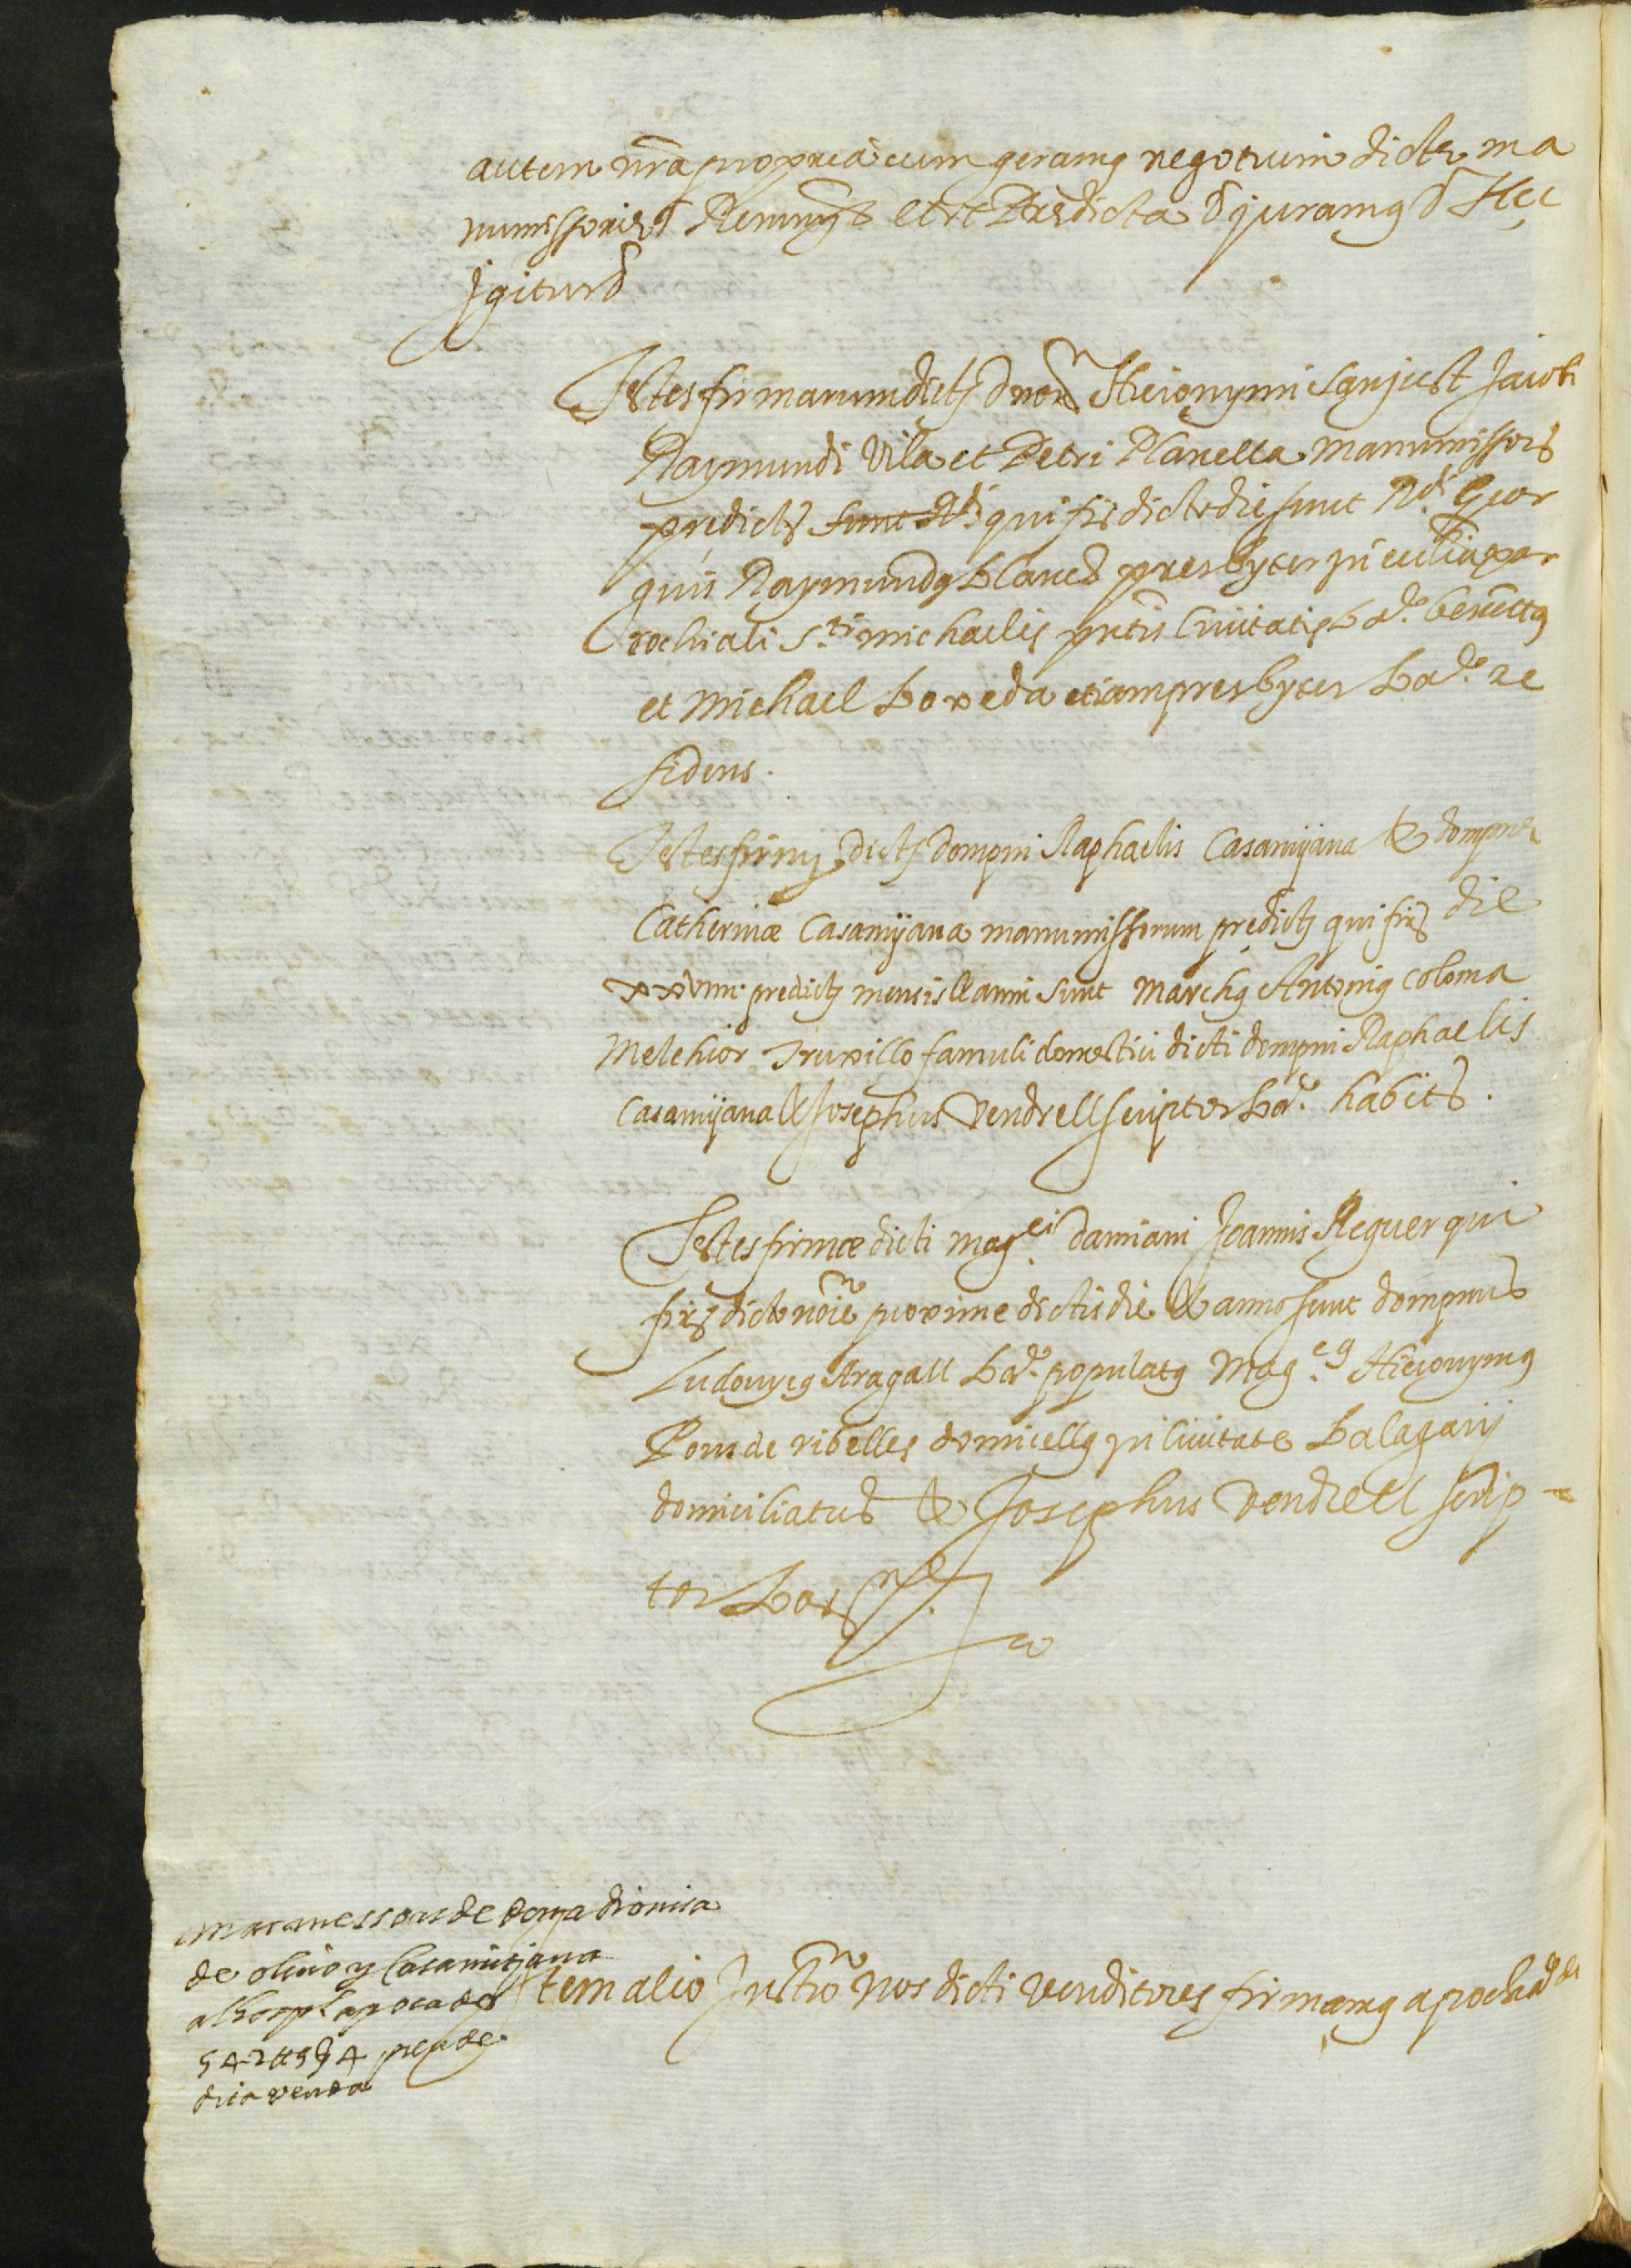 autem nrã propria cum geramꝰ negotium dicte ma
numissorie & Renunꝰ & etc Predicta & juramꝰ & Hec
Igitur &
Testes firmarum dictꝫ dnoꝝ Hieronymi Sanjust Jacobi
Raymundi Vila et Petri Planella manumissorꝫ
predictꝫ sunt Rdi qui fiꝫ dicto die sunt Rdi Geor
gius Raymundꝰ blanch presbyter in ecclia par
rochiali Sti michaelis pntis Civitatis Bar. benettꝰ
et Michael boxeda etiam presbyter Bar. re
sidens.
Testes firmꝫ dictꝫ dompni Raphaelis Casamijana & dompne
Catherinæ Casamijana manumissorum predictꝫ qui fiꝫ die
xxviiii. predictꝫ mensis & anni sunt Marchꝰ Antoniꝰ Coloma
Melchior Truxillo famuli domestici dicti dompni Raphaelis
Casamijana & Josephus Vendrell scriptor Bar. habitꝫ.
Testes firmæ dicti magci Damiani Joannis Reguer qui
fiꝫ dicto noie proxime dictis die & anno sunt dompnus
Ludovycꝰ Aragall Bar. populatꝰ Magcꝰ Hieronymꝰ
Pons de ribelles domicellꝰ in Civitate Balagarij
domiciliatus & Josephus Vendrell scrip-
tor Barne.
Marmessors de dona dionisa
de olivo y Casamitjana
al hospl apoca de
542 ℔ 5 ß 4 preu de
dita venda
Item alio Instro nos dicti venditores firmamꝰ apocha de